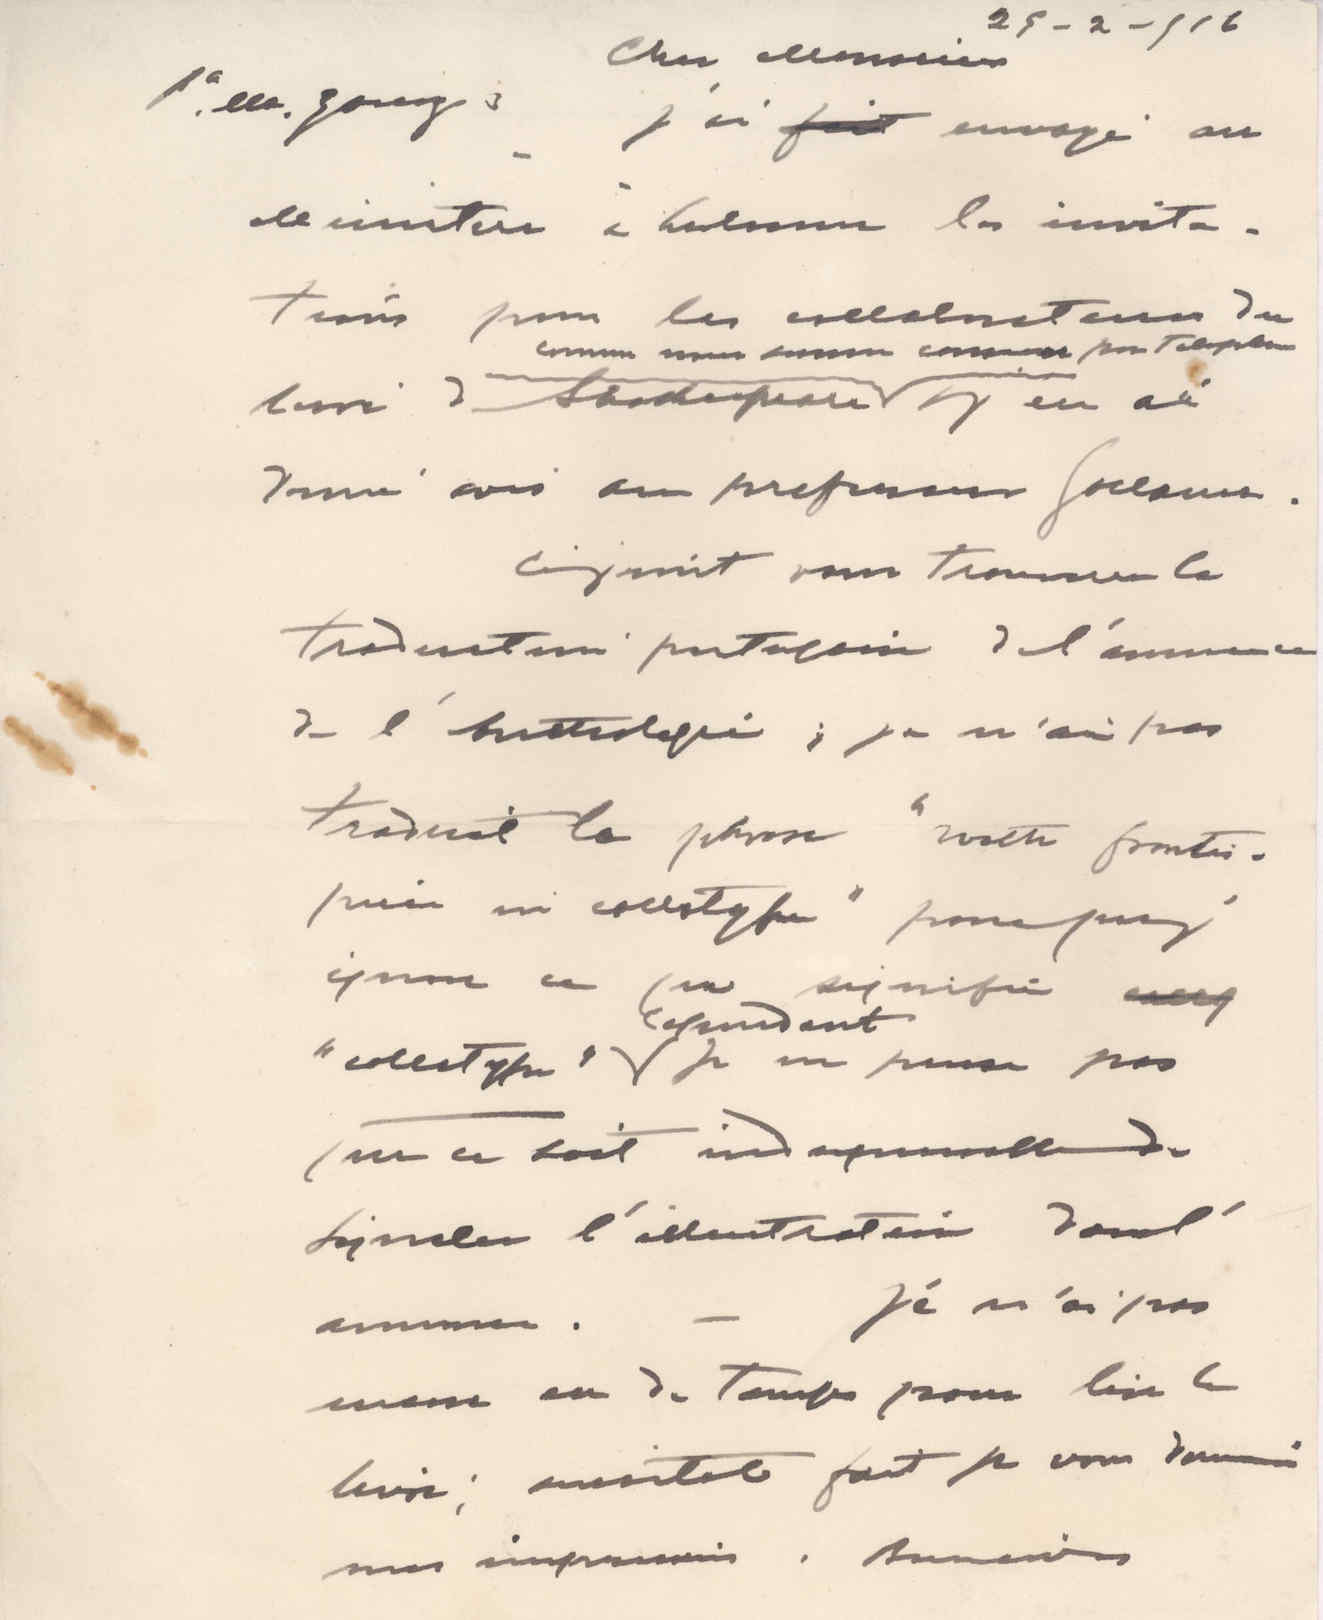 29-2-916
Cher Monsieur
J'ai fait envoyé au
Ministere à Lisbonne les invita-
tions pour les collaborateurs du
comme nous sommes convenus par telephone
livre de Shakespeare j'en ai
donné avis au professeur Gollancz.
Ci-joint vous trouverez la
traduction portugaise de l'annonce
de l'anthologie ; je n'ai pas
traduit la phrase "with frontis-
piece in collotype" parce que j'
ignore ce que signifie
"collotype" cependant Je ne pense pas
que ce soit indispensable de
signaler l'illustration dans l'
annonce. — Je n'ai pas
encore eu de temps pour lire le
livre; aussitôt fait je vous donnerai
mes impressions.